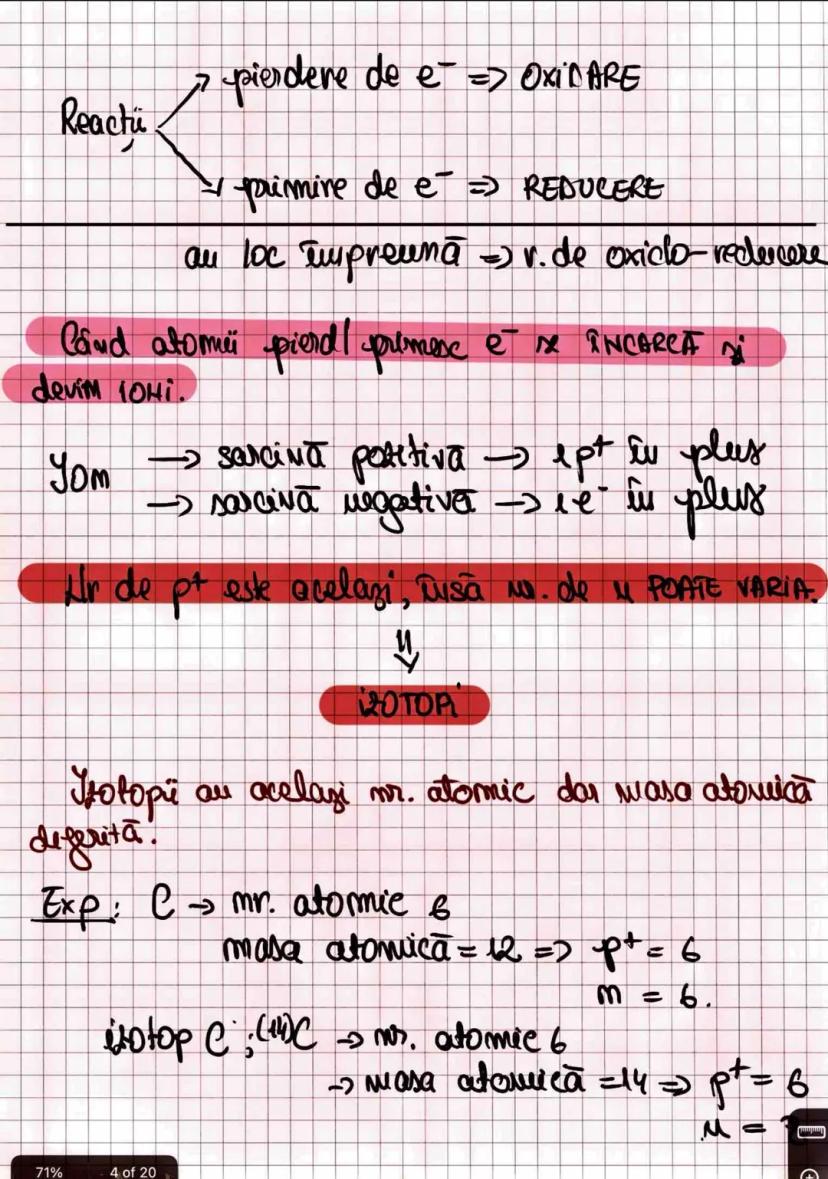 Reacții
→ pierdere de e⁻ => OXIDARE
→ primire de e⁻ => REDUCERE
au loc împreună → r. de oxido-reducere
Când atomii pierd/primesc e⁻ se ÎNCARCĂ și
devin IONI.
Ion → sarcină pozitivă → 1p⁺ în plus
→ sarcină negativă → 1e⁻ în plus
Nr de p⁺ este același, însă nr. de n POATE VARIA.
⇓
IZOTOPI
Izotopii au același nr. atomic dar masa atomică
diferită.
Exp: C → nr. atomic 6
masa atomică = 12 => p⁺ = 6
n = 6.
izotop C ; (14)C → nr. atomic 6
→ masa atomică = 14 => p⁺ = 6
n =
71% 4 of 20